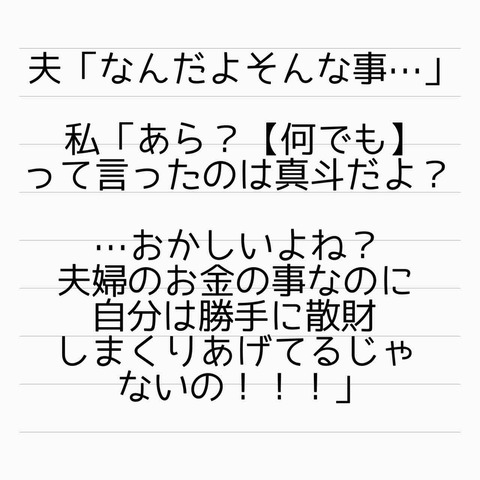 夫「なんだよそんな事…」
私「あら？【何でも】
って言ったのは真斗だよ？
…おかしいよね？
夫婦のお金の事なのに
自分は勝手に散財
しまくりあげてるじゃ
ないの！！！」